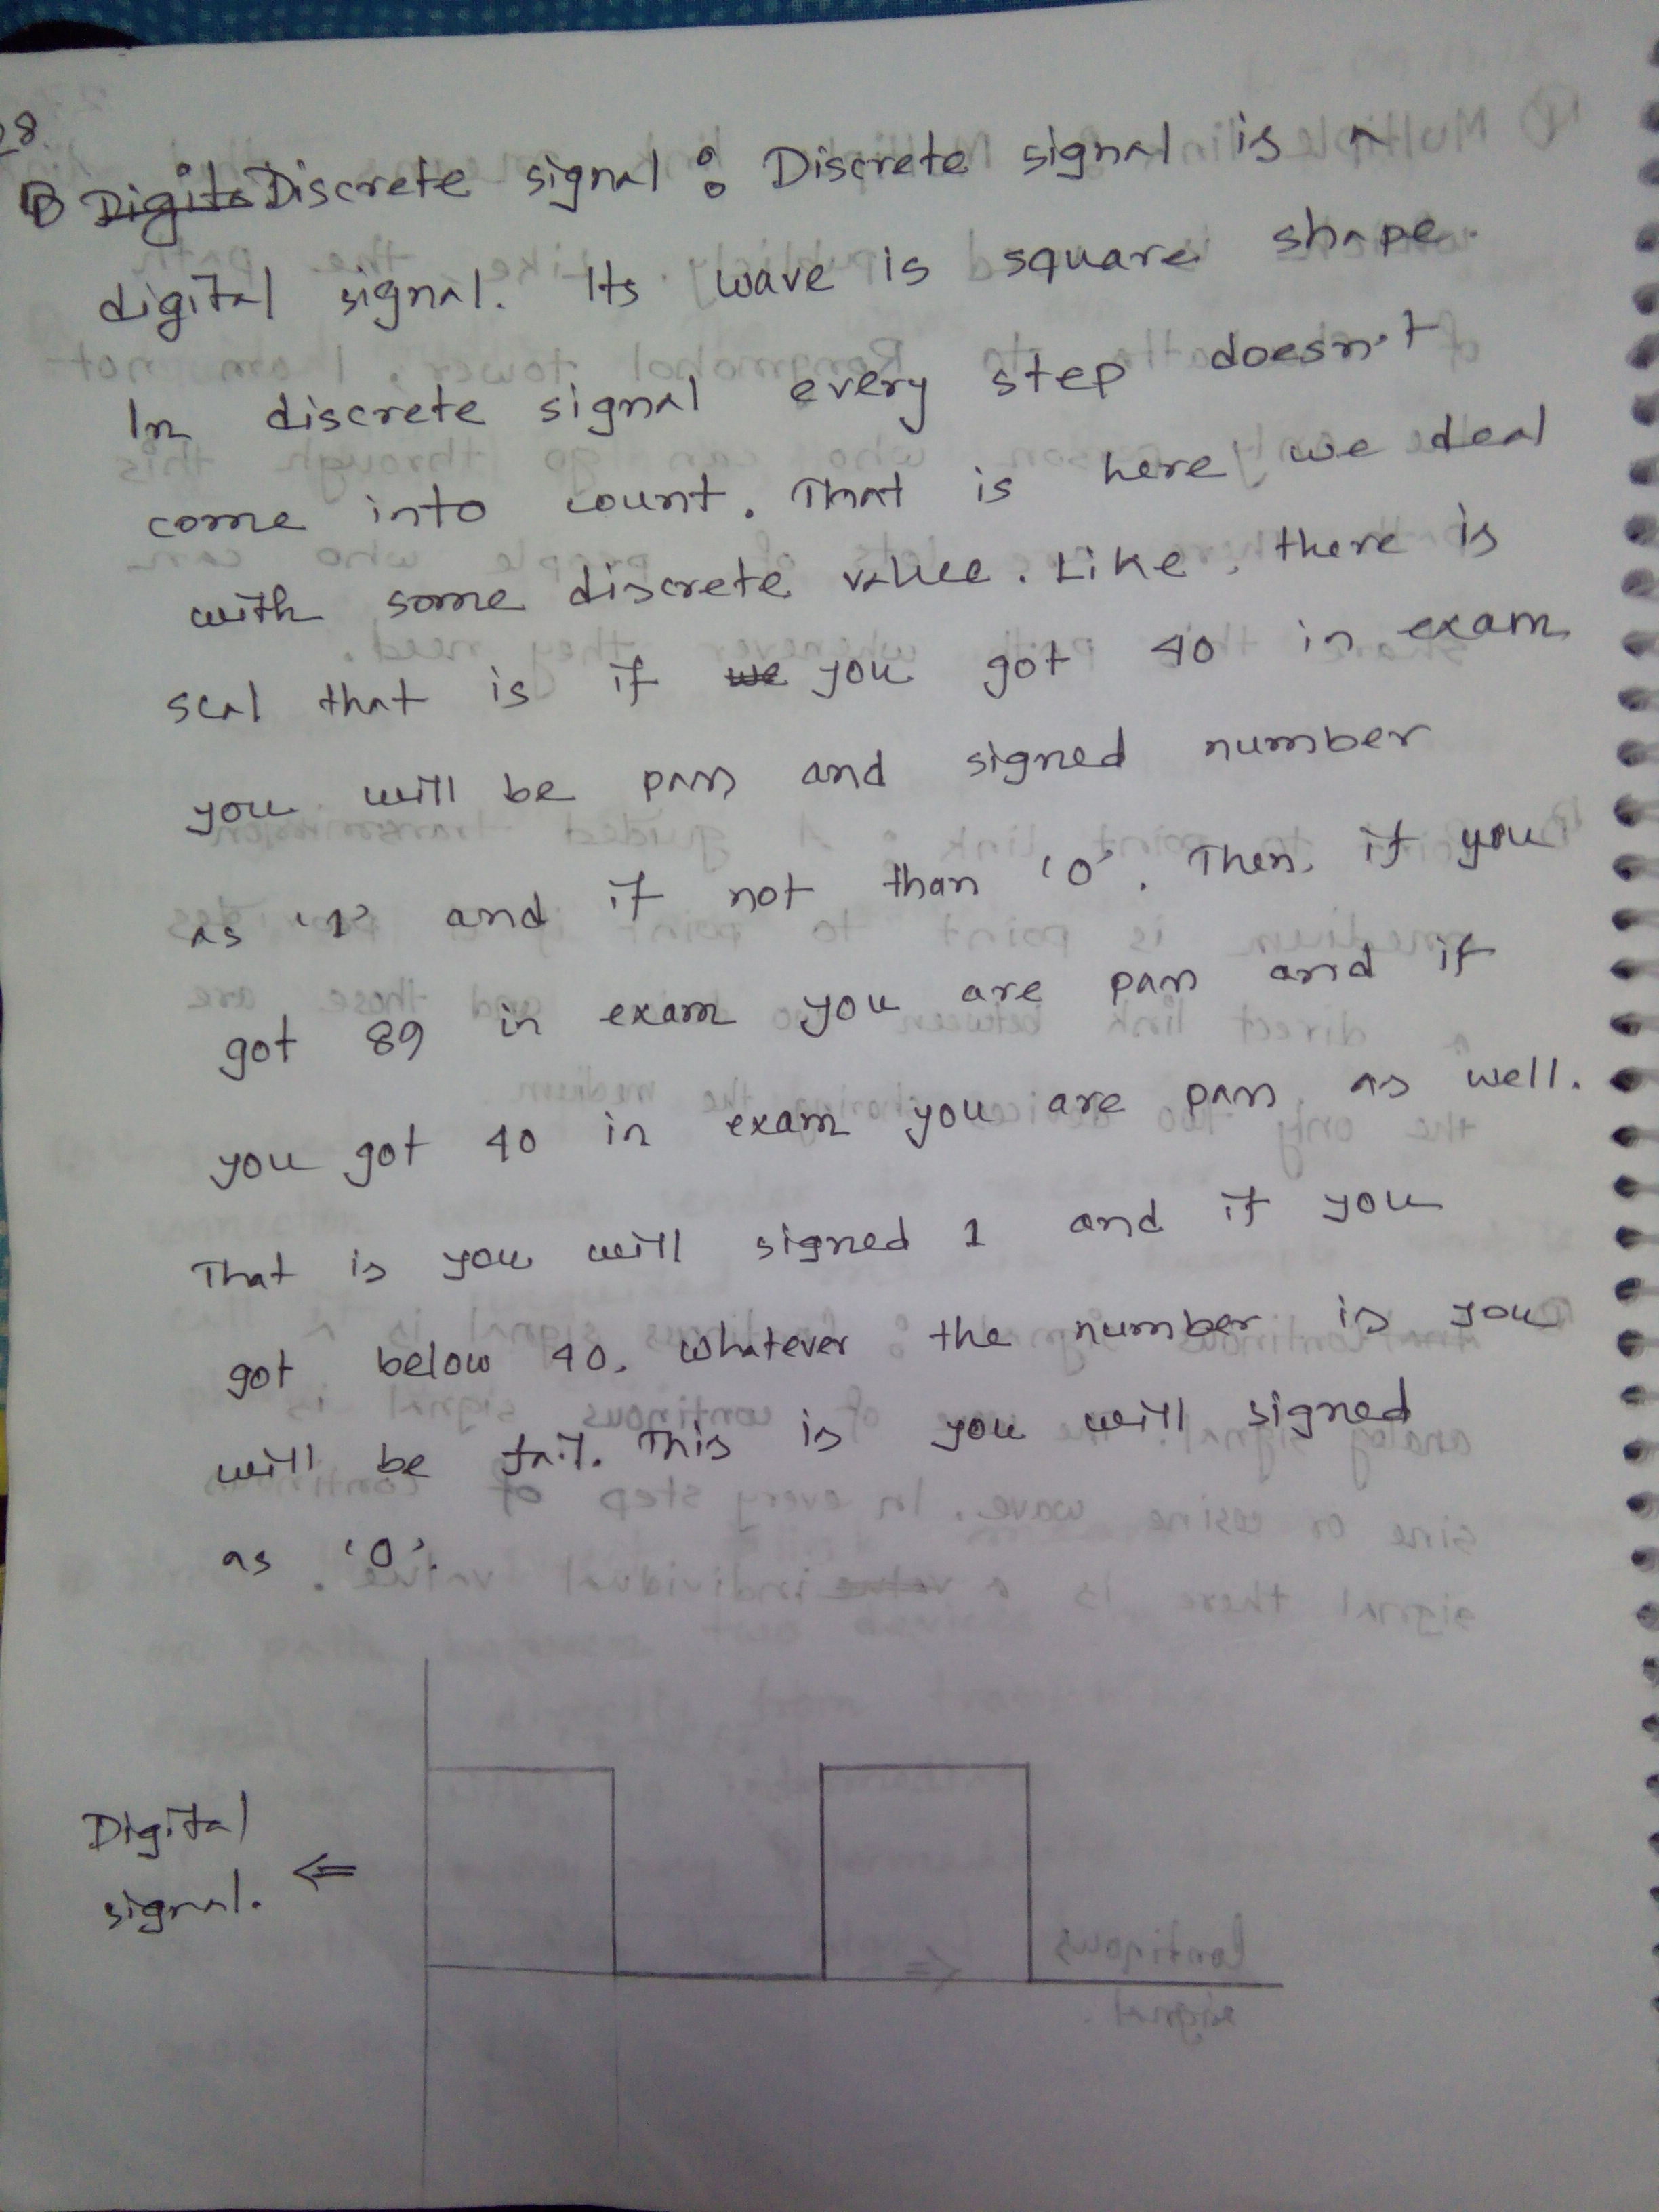 28
Digita Discrete signal : Discrete signal is a
digital signal. Its wave is square shape.
In discrete signal every step doesn't
come into count. That is here we deal
with some discrete value. Like, there is
scal that is if we you got 40 in exam
you will be pass and signed number
as '1' and if not than '0'. Then, if you
got 89 in exam you are pass and if
you got 40 in exam you are pass as well.
That is you will signed 1 and if you
got below 40, whatever the number is you
will be fail. This is you will signed
as '0'.
Digital
signal. <=